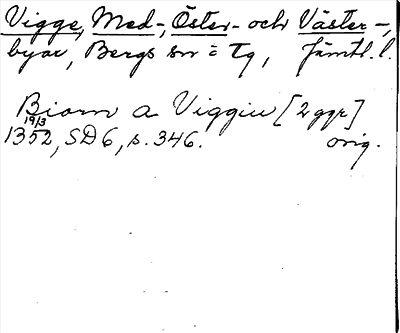 Vigge, Med-, Öster- och Väster-,
byar, Bergs sn o tg, Jämtl. l.
Biorn a Viggiu [2 ggr]
19/3
1352, SD 6, s. 346. orig.